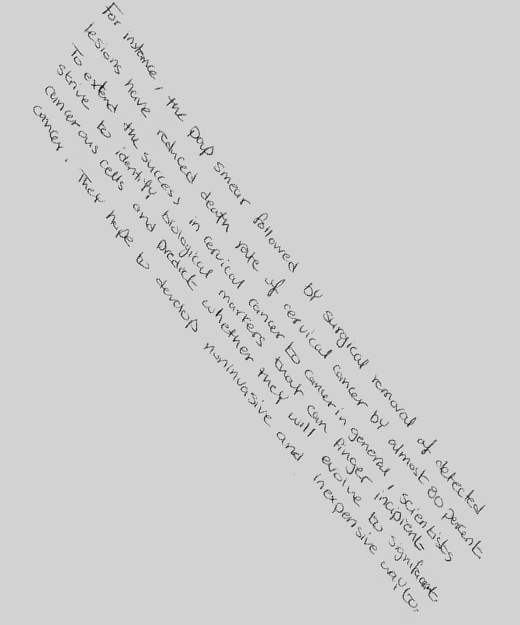 For instance, the pap smear followed by surgical removal of detected
lesions have reduced death rate of cervical cancer by almost 80 percent.
To extend the success in cervical cancer to cancer in general, scientists
strive to identify biological markers that can finger incipient
cancerous cells and predict whether they will evolve to significant
cancer. They hope to develop noninvasive and inexpensive way to.